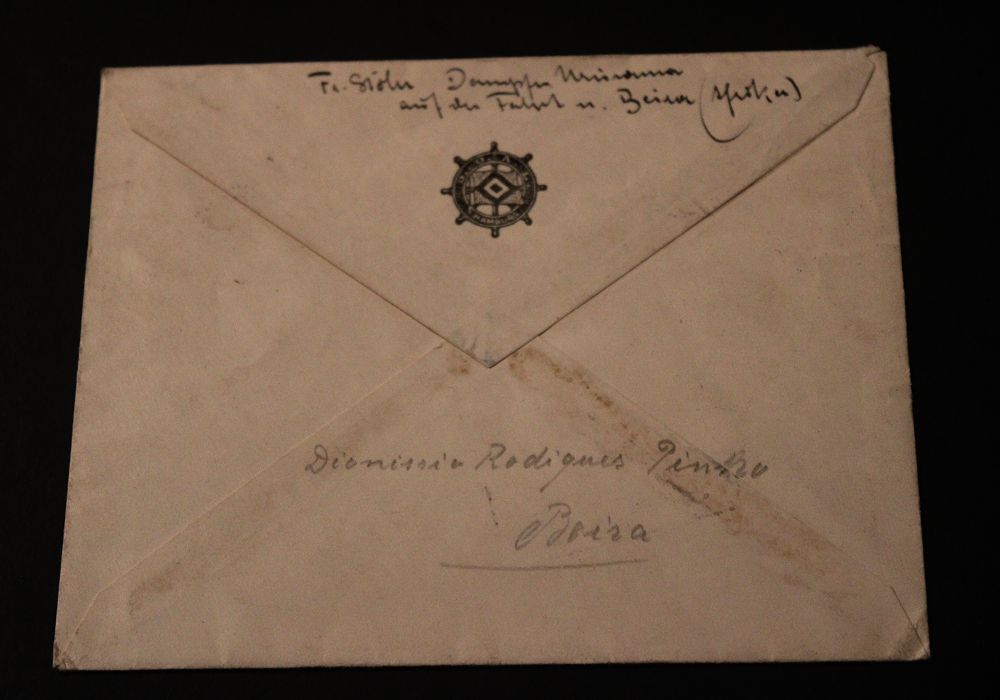 Fr. Stöhr Dampfer Usaramo
auf der Fahrt n. Beira (Afrika)
HAMBURG
Dionissio Rodigues Pintto
Beira